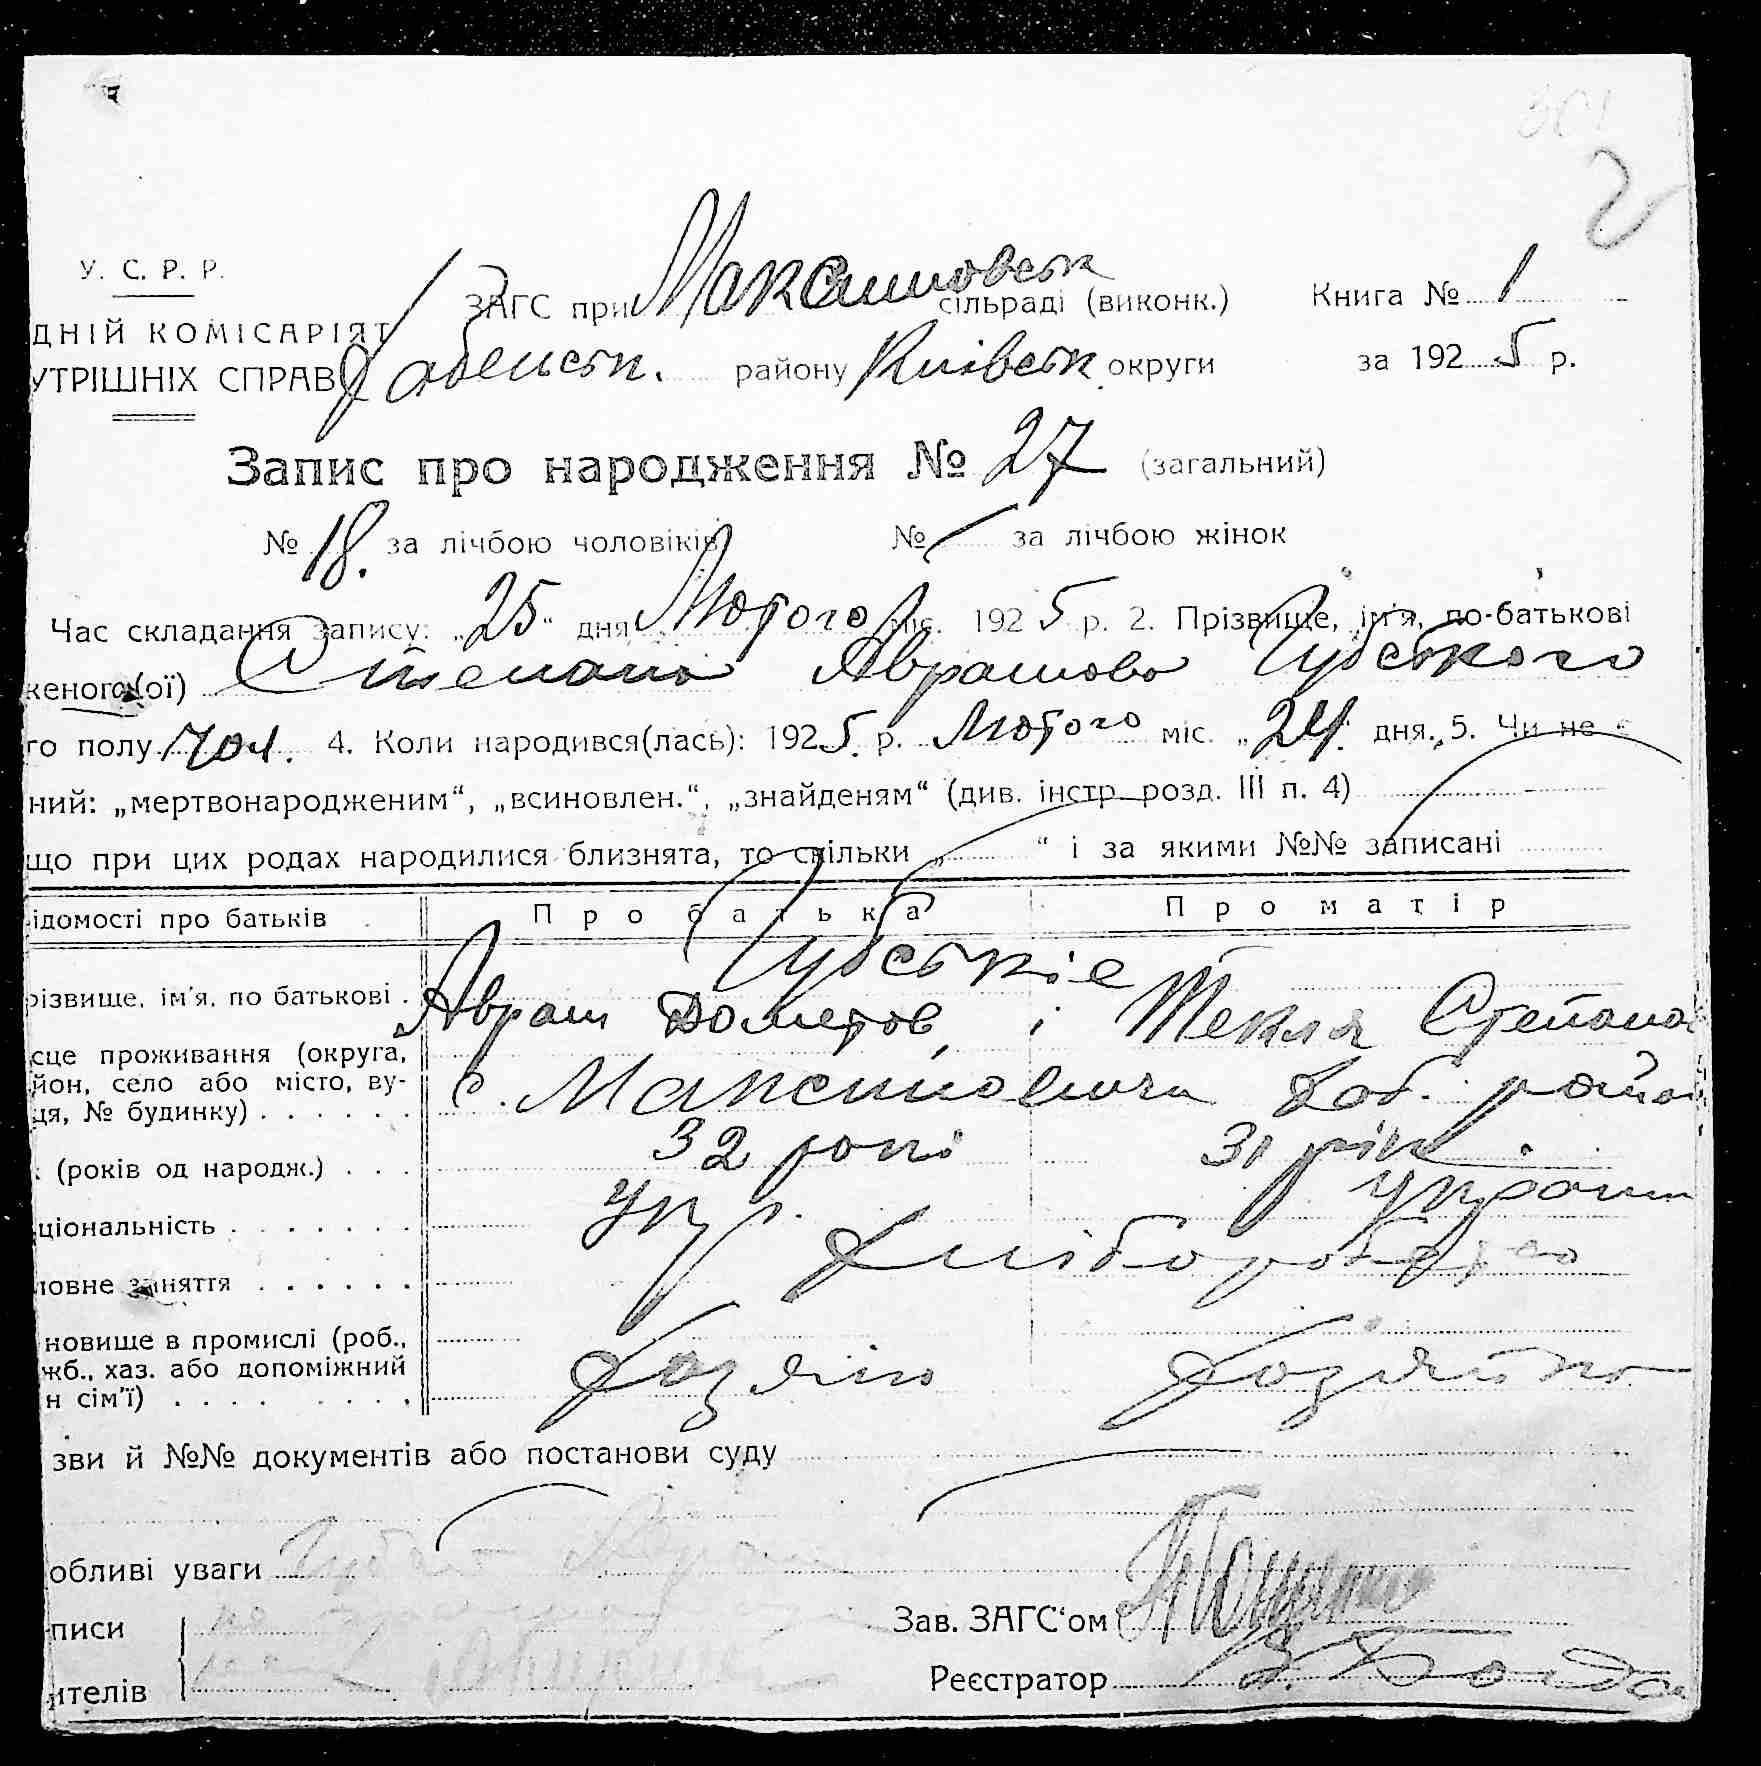 2
У. С. Р. Р.
ДНІЙ КОМІСАРІЯТ
УТРІШНІХ СПРАВ
ЗАГС при Максимовськ сільраді (виконк.)
Книга № 1
Хабенськ. району Київськ округи
за 1925 р.
Запис про народження № 27 (загальний)
№ 18. за лічбою чоловіків № за лічбою жінок
Час складання запису: „25“ дня Лютого міс. 1925 р. 2. Прізвище, ім'я, по-батькові
женого(ої) Степана Аврамова Губського
го полу чол. 4. Коли народився(лась): 1925 р. Лютого міс. „24“ дня. 5. Чи не є
ний: „мертвонародженим“, „всиновлен.“, „знайденям“ (див. інстр. розд. III п. 4)
що при цих родах народилися близнята, то скільки „ “ і за якими №№ записані
ідомості про батьків Про батька Про матір
Губськіе
різвище, ім'я, по батькові . Аврам Дометов, і Текля Степанов
сце проживання (округа,
йон, село або місто, ву-
ця, № будинку) . . . . . . с. Максимовичи Хаб. район
. (років од народж.) . . . 32 рокі 31 рік.
ціональність . . . . . . . Укр. Україн
ловне заняття . . . . . . Хліборобство
новище в промислі (роб.,
жб., хаз. або допоміжний
н сім'ї) . . . . . . . . . Хазяїн Хазяйка
зви й №№ документів або постанови суду
обливі уваги
писи
Зав. ЗАГС'ом
ителів
Реєстратор